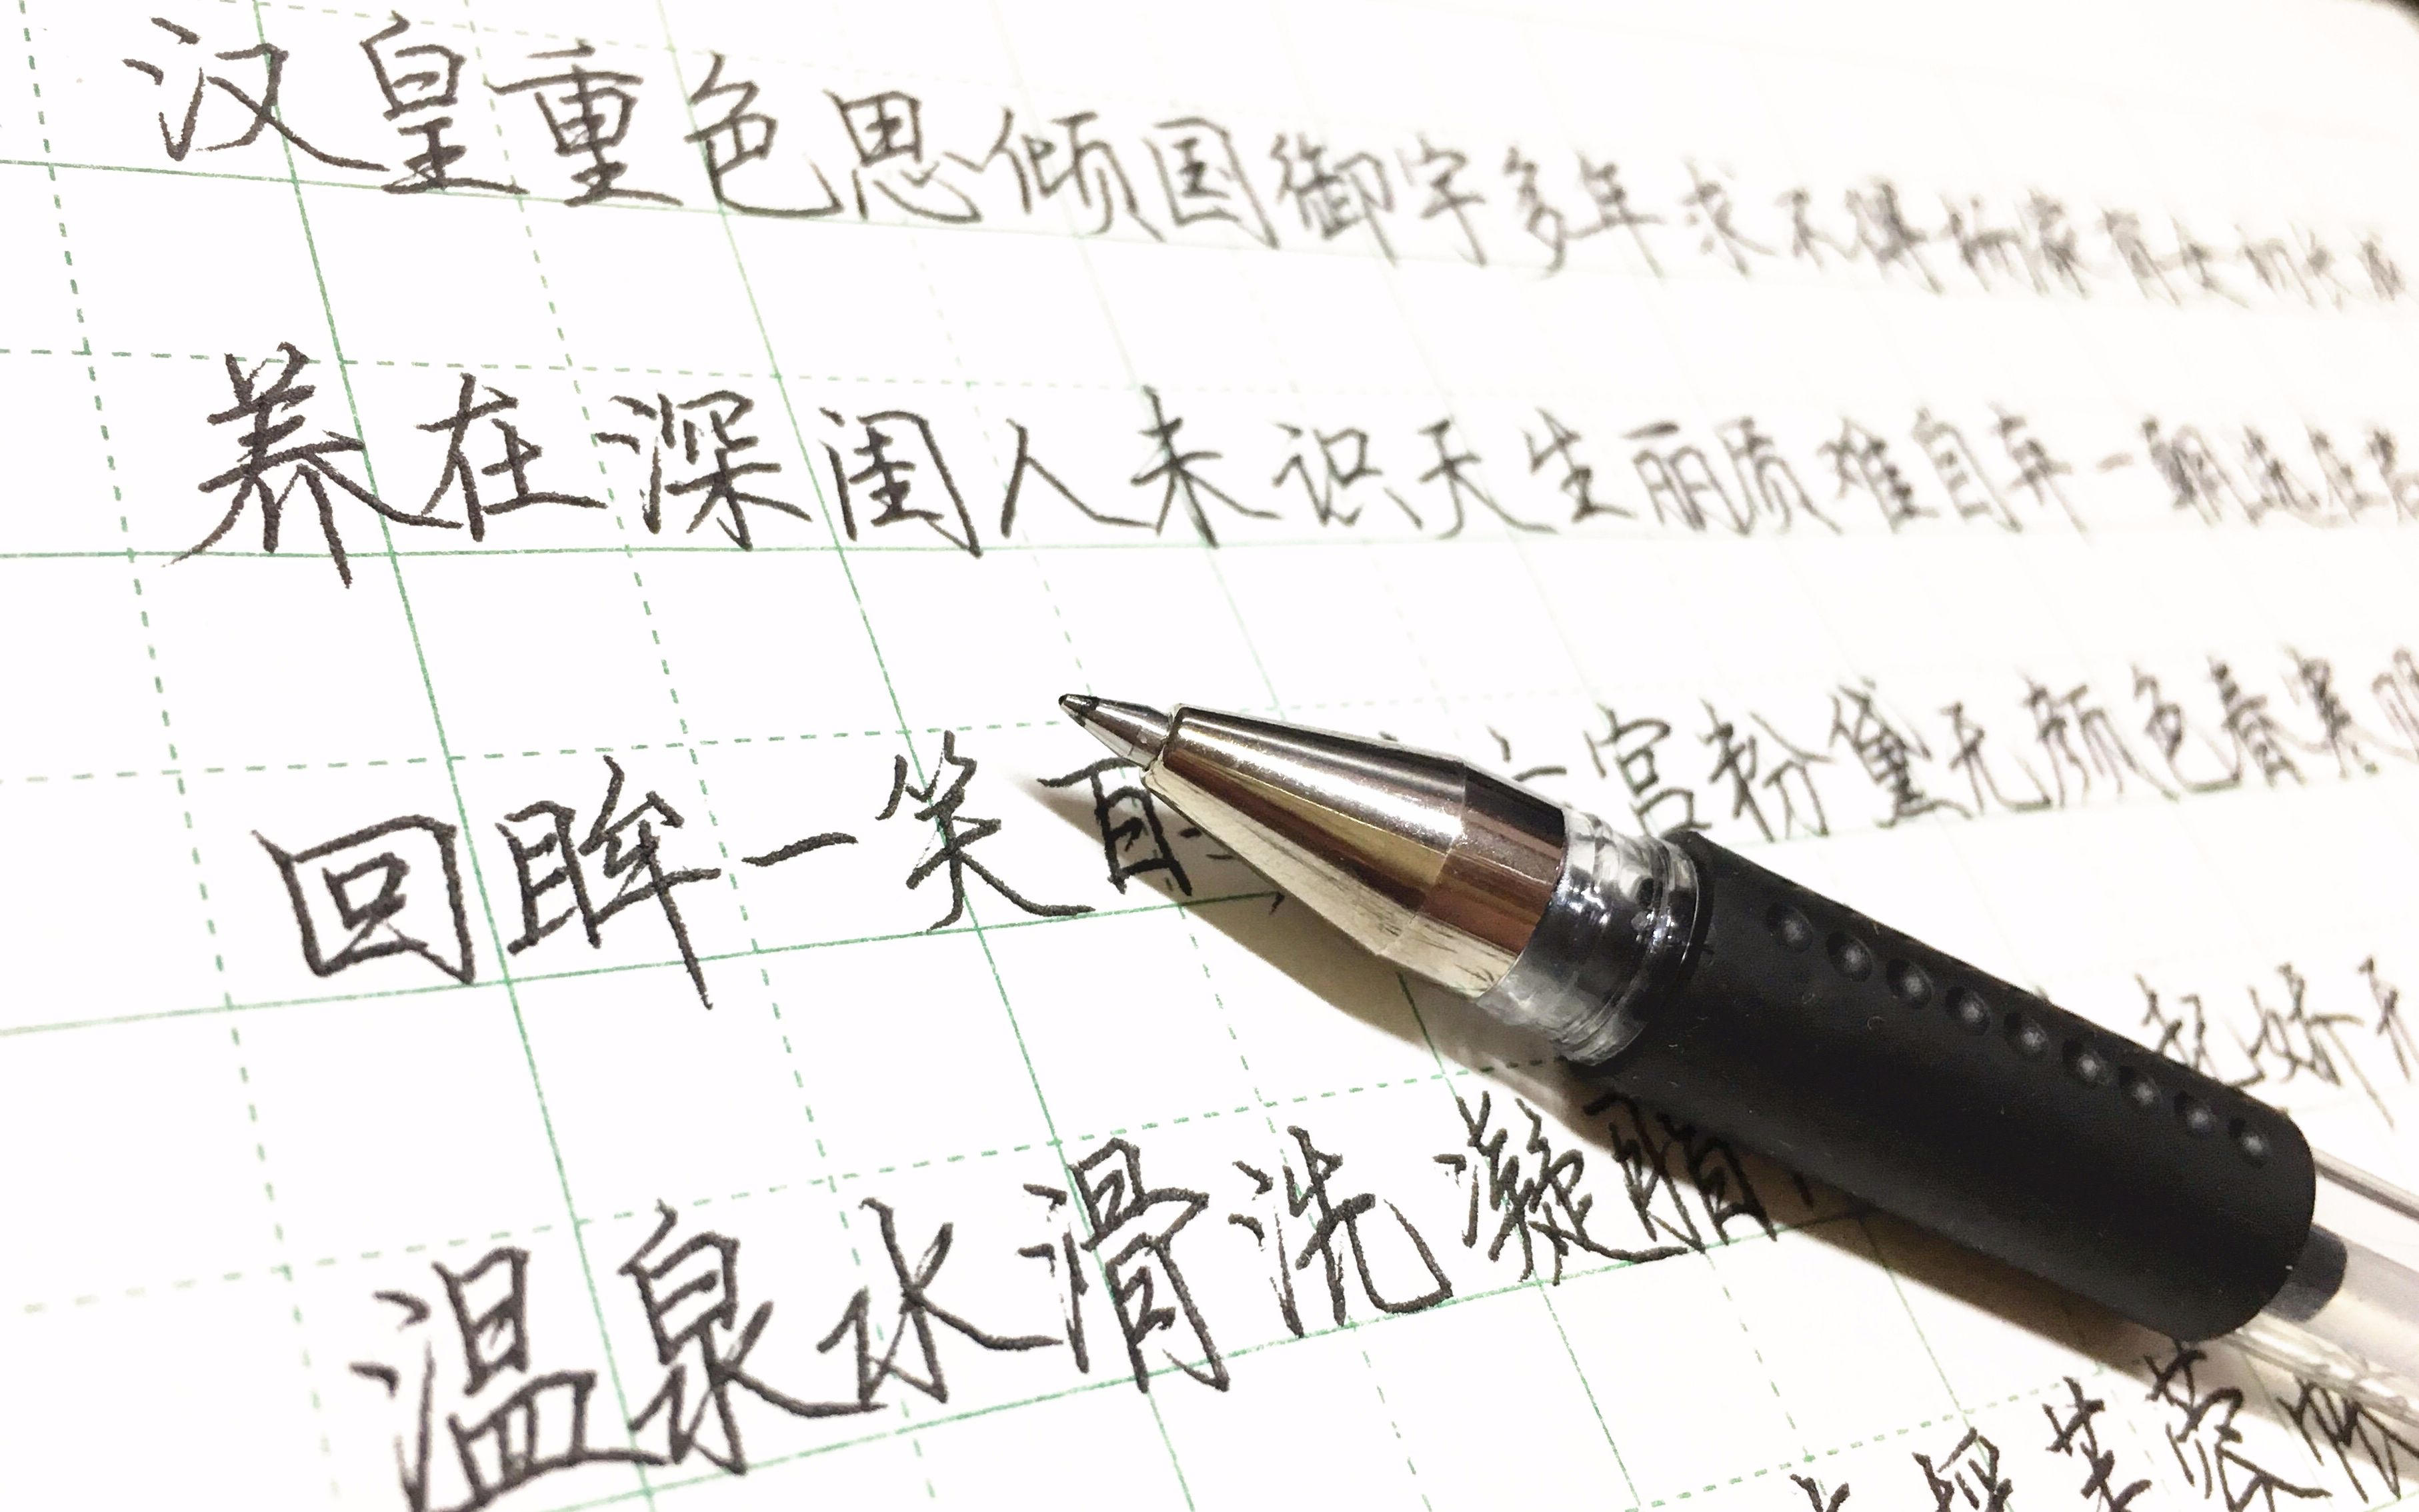 汉皇重色思倾国御宇多年求不得杨家有女初长成
养在深闺人未识天生丽质难自弃一朝选在君
回眸一笑百六宫粉黛无颜色春寒赐
温泉水滑洗凝脂起娇无
暖芙蓉帐